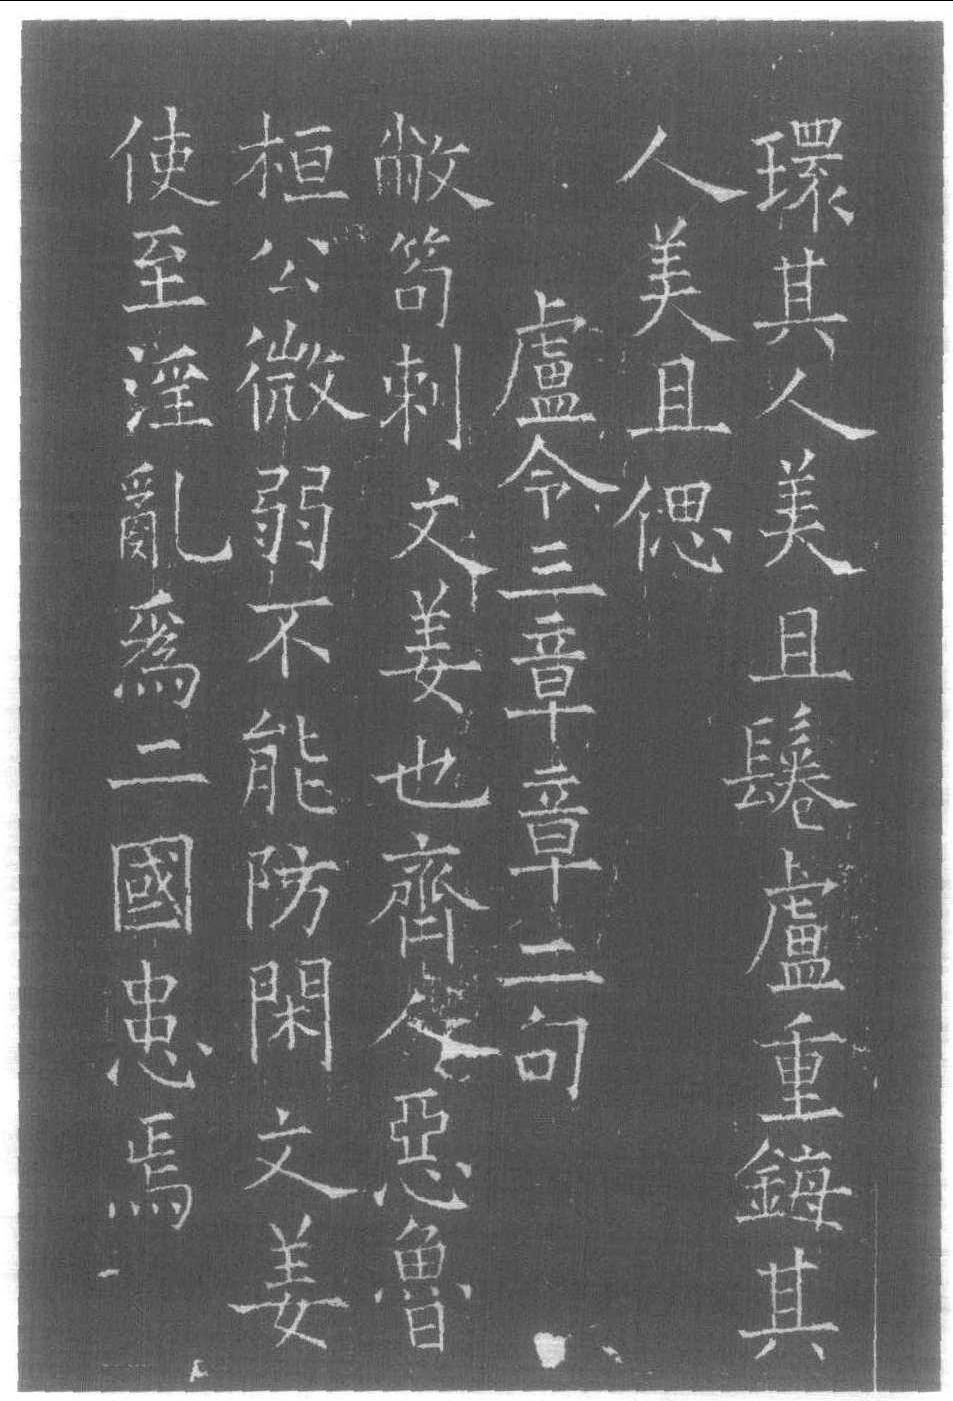 環其人美且鬈盧重鋂其
人美且偲
盧令三章章二句
敝笱刺文姜也齊人惡魯
桓公微弱不能防閑文姜
使至淫亂為二國患焉